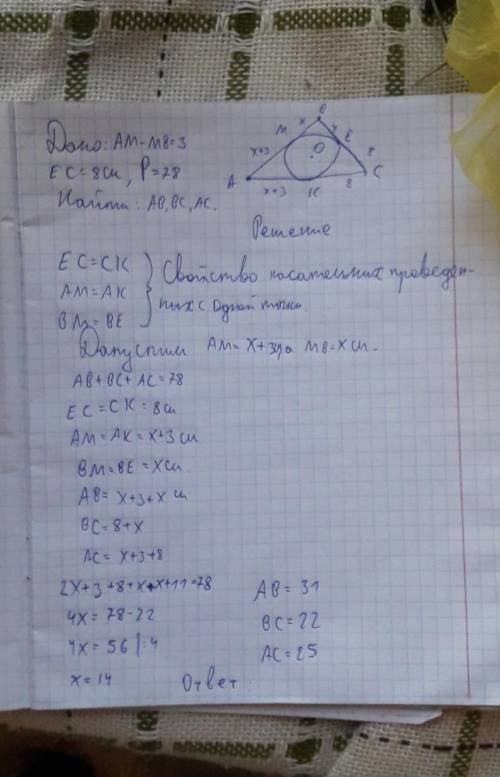 Дано: AM-MB=3
EC=8см, P=78
Найти: AB, BC, AC.
B
x x
M E
x+3 O 8
A C
x+3 K 8
Решение
EC=CK
AM=AK
BM=BE
Свойство касательних проведен-
них с одной точки
Дапустим AM=x+3см, а MB=x см.
AB+BC+AC=78
EC=CK=8см
AM=AK=x+3 см
BM=BE=x см
AB=x+3+x см
BC=8+x
AC=x+3+8
2x+3+8+x+x+11=78
4x=78-22
4x=56 |:4
x=14
AB=31
BC=22
AC=25
Ответ